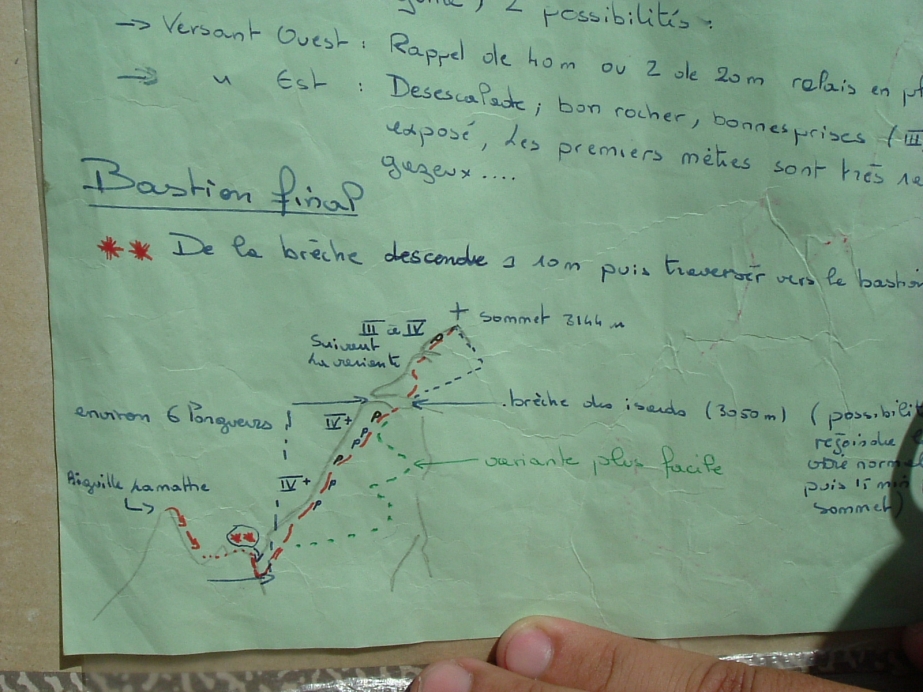 2 possibilités :
→ Versant Ouest : Rappel de 40m ou 2 de 20m relais en
→ " Est : Desescalade, bon rocher, bonnes prises (III
exposé, Les premiers mètres sont très
gazeux ....
Bastion final
** De la brèche descendre à 10m puis traverser vers le bastion
+ sommet 3144 m
III à IV
Suivant
La variante
P
brèche des isards (3050m) (possibilité
environ 6 longueurs
IV+
P
P
P
rejoindre
variante plus facile
voie normale
P
puis 15 min
IV+
P
sommet)
Aiguille Lamathe
**